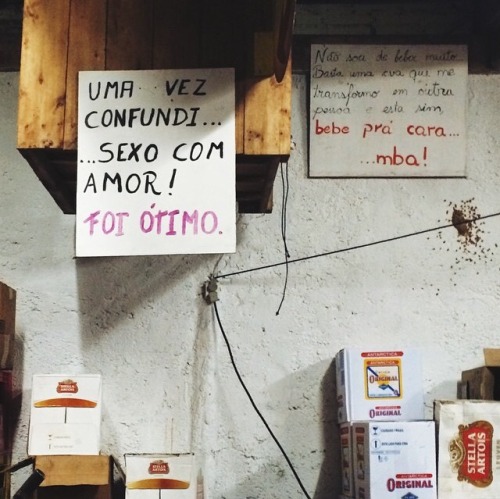 UMA VEZ
CONFUNDI...
...SEXO COM
AMOR!
FOI ÓTIMO.
Não sou de beber muito.
Basta uma uva que me
transformo em outra
pessoa e esta sim,
bebe prá cara...
...mba!
STELLA
ARTOIS
ANTARCTICA
ORIGINAL
ORIGINAL
ORIGINAL
STELLA
ARTOIS